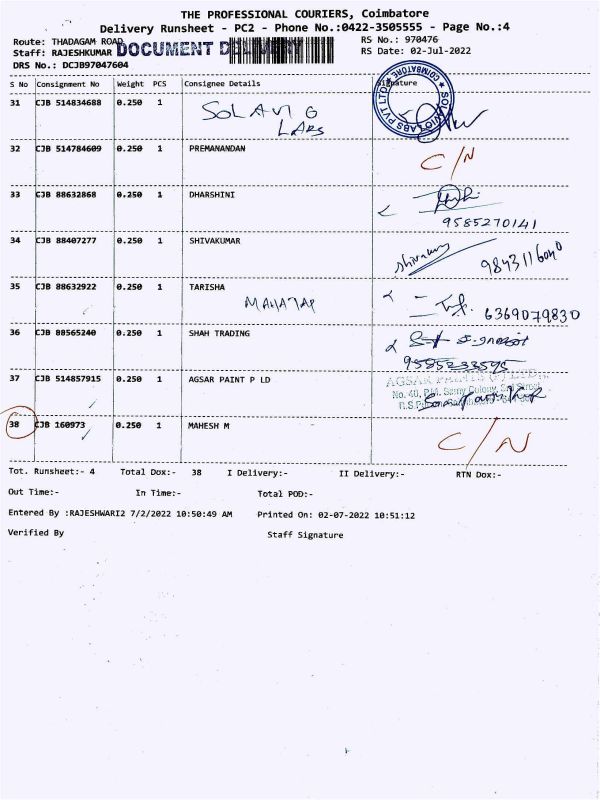 THE PROFESSIONAL COURIERS, Coimbatore
Delivery Runsheet - PC2 - Phone No.:0422-3505555 - Page No.:4
Route: THADAGAM ROAD RS No.: 970476
Staff: RAJESHKUMAR DOCUMENT DELIVERY RS Date: 02-Jul-2022
DRS No.: DCJB97047604
S No Consignment No Weight PCS Consignee Details Signature
31 CJB 514834688 0.250 1 SOLAVIO
LABS
SOLAVIO LABS PVT LTD COIMBATORE
32 CJB 514784609 0.250 1 PREMANANDAN C/N
33 CJB 88632868 0.250 1 DHARSHINI
9585270141
34 CJB 88407277 0.250 1 SHIVAKUMAR Shivakumar
35 CJB 88632922 0.250 1 TARISHA
6369079830
36 CJB 88565240 0.250 1 SHAH TRADING
37 CJB 514857915 0.250 1 AGSAR PAINT P LD
AGSAR PAINTS (P) LTD
No. 40, P.M. Samy Colony,
38 CJB 160973 0.250 1 MAHESH M C/N
Tot. Runsheet:- 4 Total Dox:- 38 I Delivery:- II Delivery:- RTN Dox:-
Out Time:- In Time:- Total POD:-
Entered By :RAJESHWARI2 7/2/2022 10:50:49 AM Printed On: 02-07-2022 10:51:12
Verified By Staff Signature